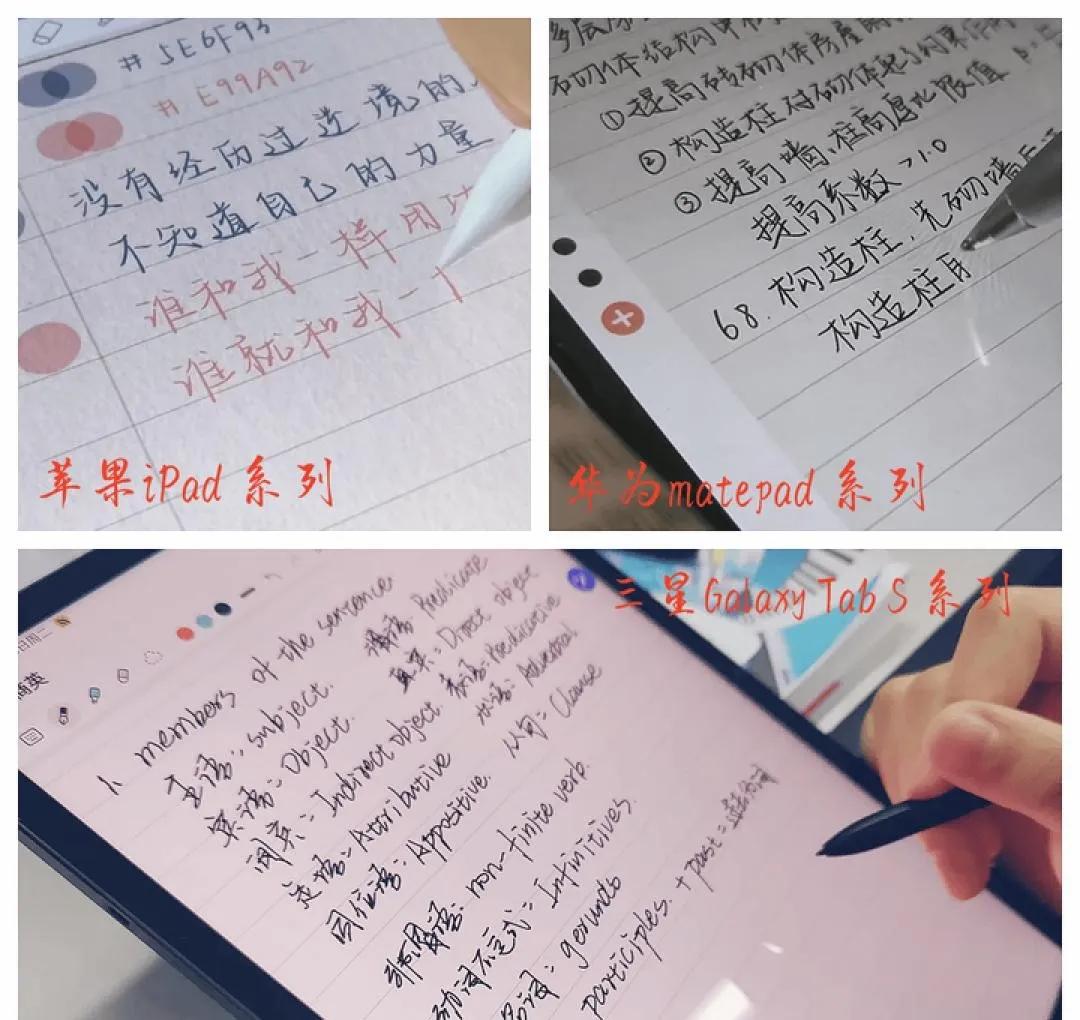 # 5E6F93
# E99A92
没有经历过逆境的人
不知道自己的力量
谁和我一样用功
谁就和我一
苹果iPad系列
多层
砖砌体结构中
①提高砖砌体房屋
②构造柱对砌体起了约束作用
③提高墙、柱高厚比限值
提高系数>1.0
68.构造柱,先砌墙后
构造柱
华为matepad系列
三星Galaxy Tab S系列
日周二
1. members of the sentence
主语: subject. 谓语: Predicate
宾语: Object. 直宾: Direct object
间宾: Indirect object. 表语: Predicative
定语: Attributive 状语: Adverbial
同位语: Appositive. 从句: Clause
非谓语: non-finite verb.
动词不定式: Infinitives.
名词: gerunds
participles. + past =